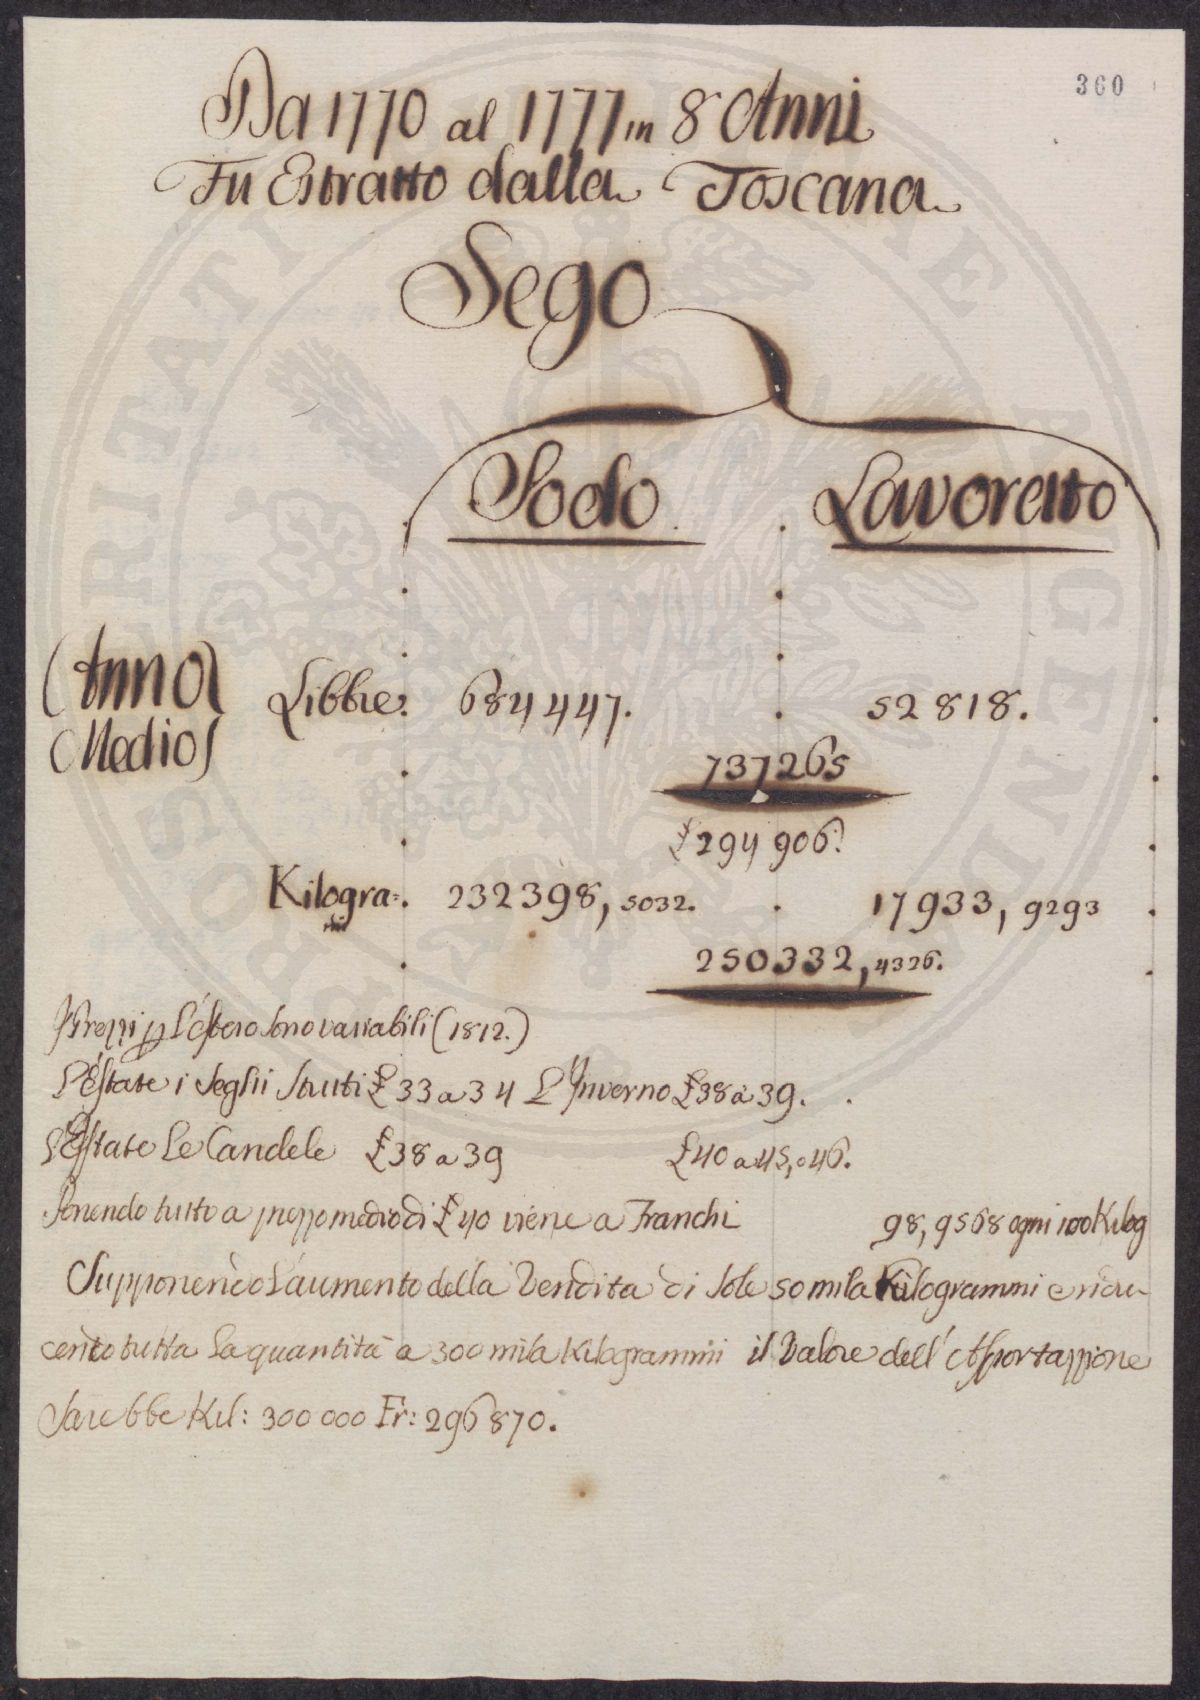 360
Da 1770 al 1777 in 8 Anni
Fu Estratto dalla Toscana
Sego
Sodo Lavoretto
Anno Medio
Libbre. 684447. 52818.
737265
£ 294906.
Kilogra=. 232398, 5032. 17933, 9293
250332, 4326.
Prezzi p L'Estero sono variabili (1812.)
L'Estate i Seghi Strutti £ 33 a 34 L'Inverno £ 38 a 39.
L'Estate Le Candele £ 38 a 39 £ 40 a 45, o 46.
Ponendo tutto a prezzo medio di £ 40 viene a Franchi 98, 9568 ogni 100 Kilog
Supponendo L'aumento della Vendita di sole 50 mila Kilogrammi e ridu-
cendo tutta La quantità a 300 mila Kilogrammi il Valore dell' Asportazzione
Sarebbe Kil: 300 000 Fr: 296870.